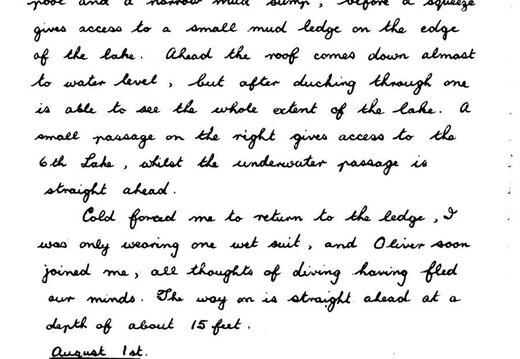 pool and a narrow mud sump, before a squeeze
gives access to a small mud ledge on the edge
of the lake. Ahead the roof comes down almost
to water level, but after ducking through one
is able to see the whole extent of the lake. A
small passage on the right gives access to the
6th Lake, whilst the underwater passage is
straight ahead.
Cold forced me to return to the ledge, I
was only wearing one wet suit, and Oliver soon
joined me, all thoughts of diving having fled
our minds. The way on is straight ahead at a
depth of about 15 feet.
August 1st.